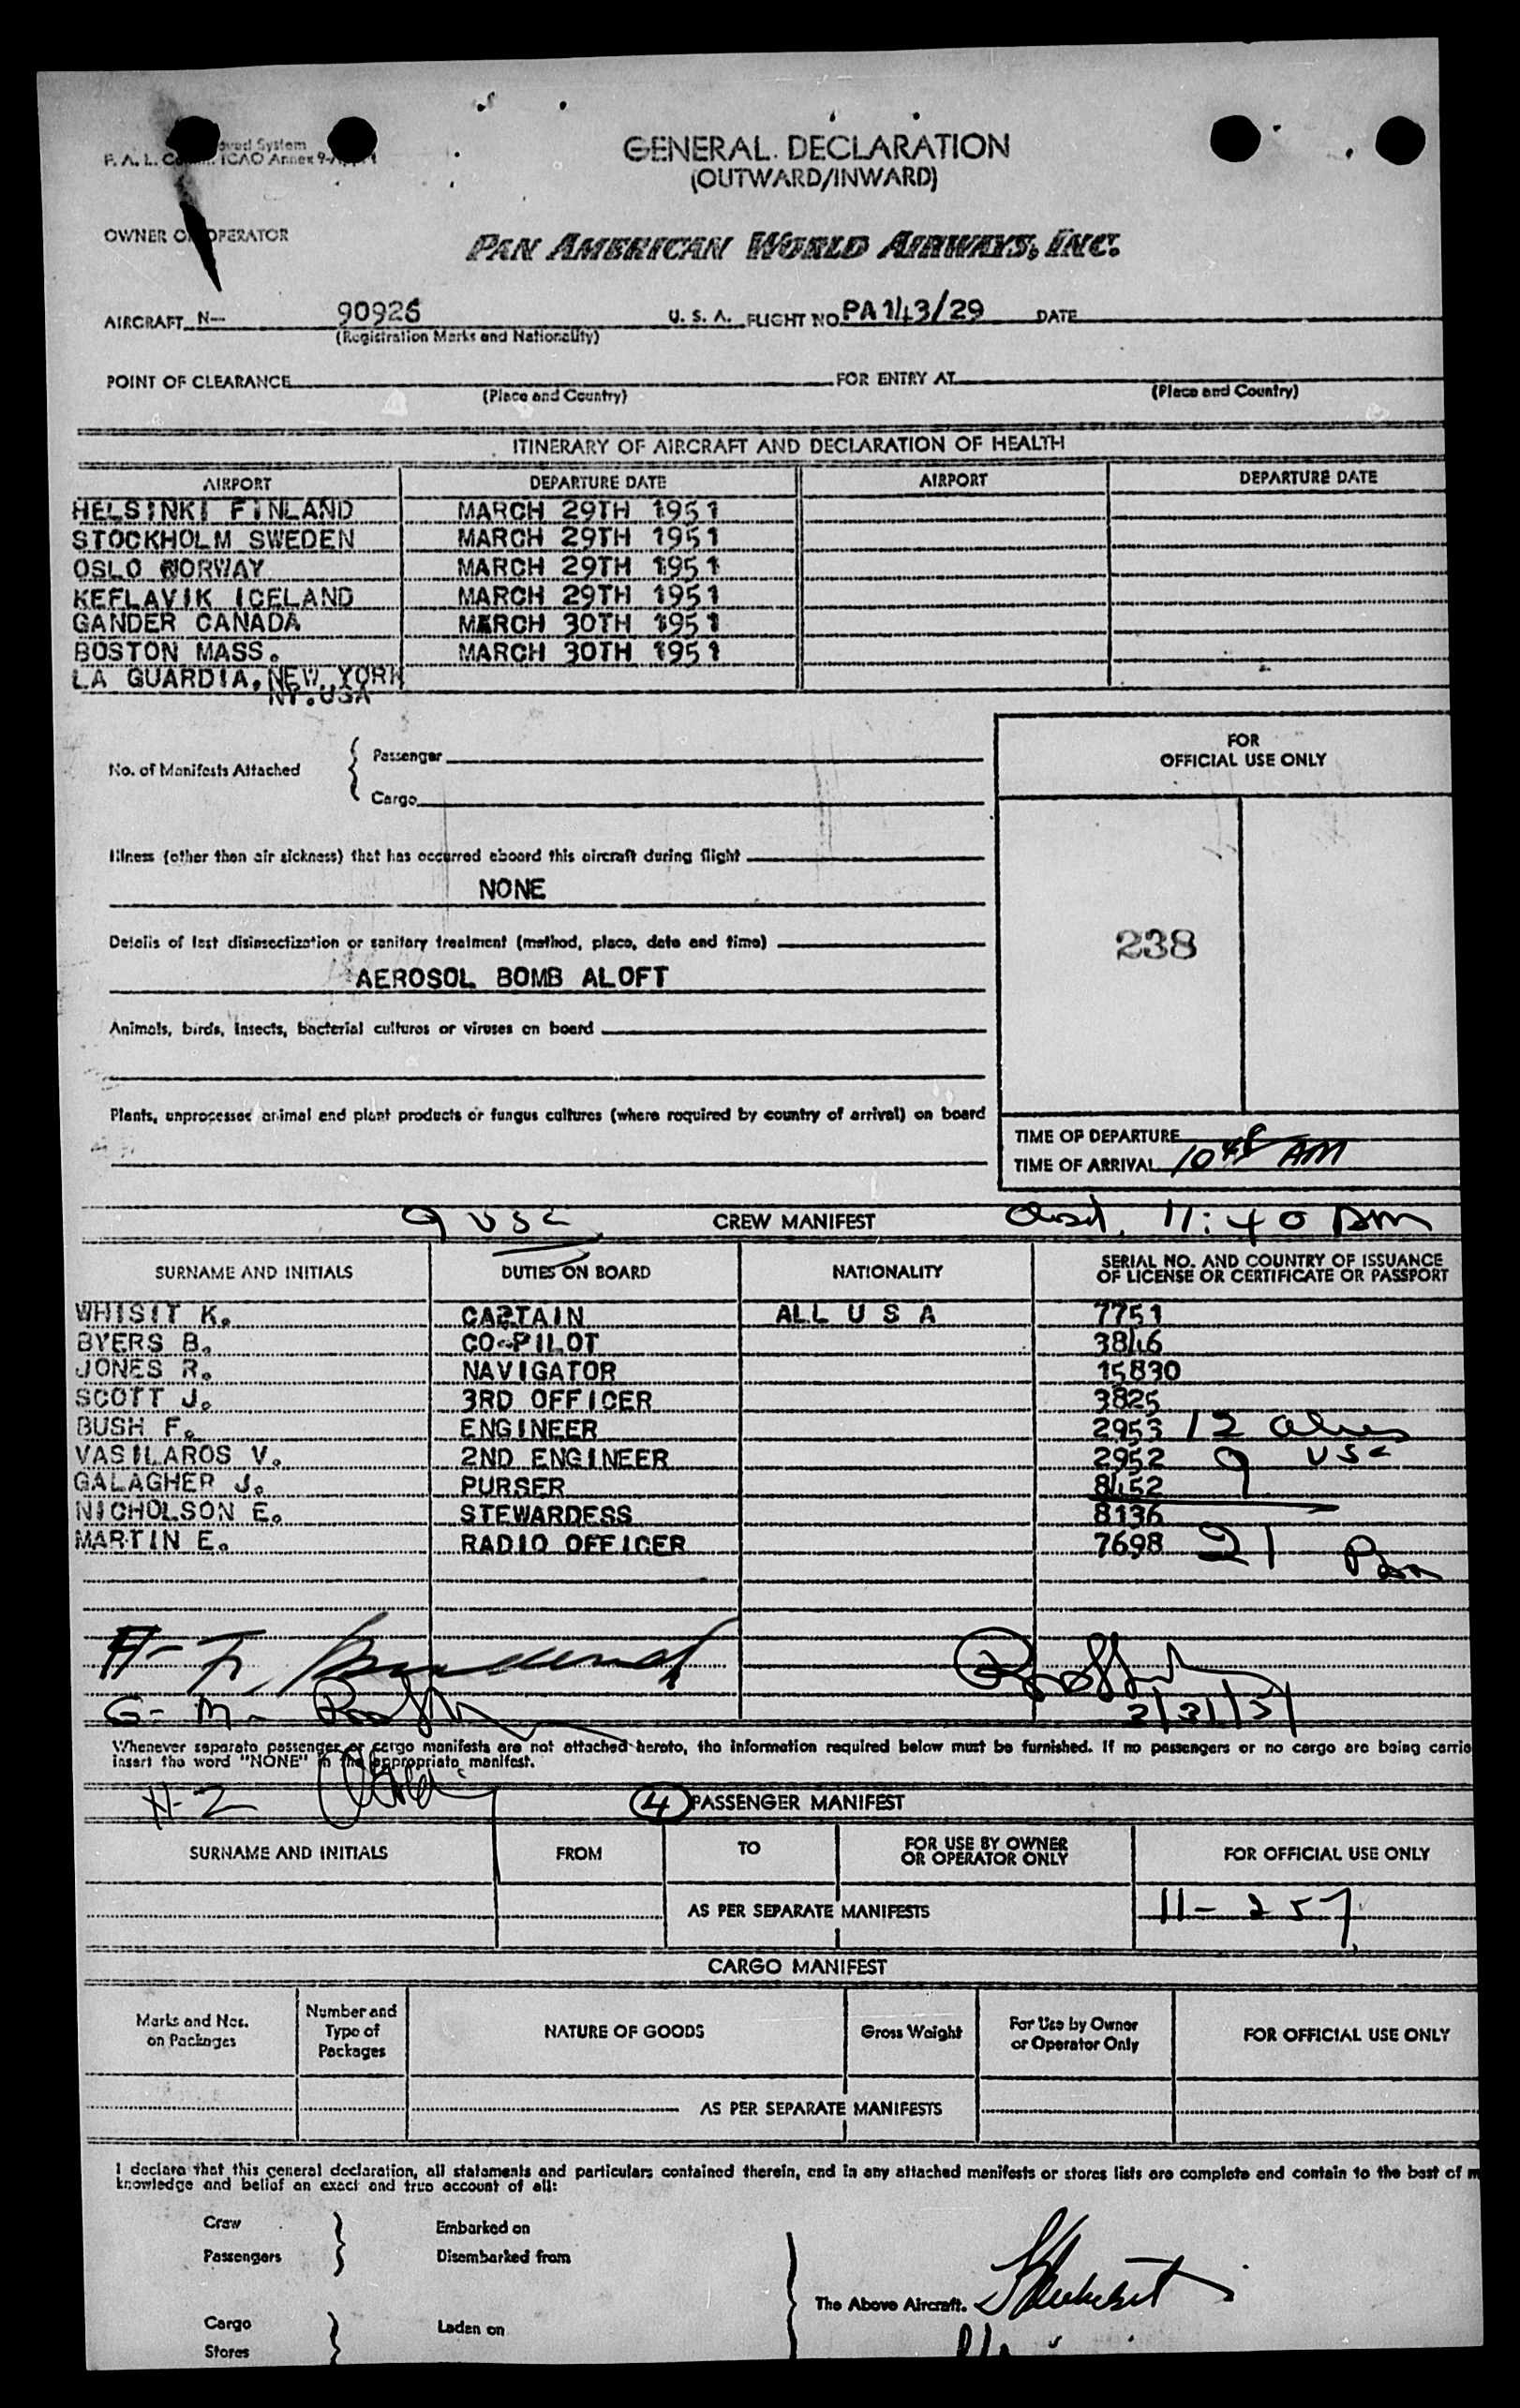 GENERAL DECLARATION
(OUTWARD/INWARD)
OWNER OR OPERATOR
PAN AMERICAN WORLD AIRWAYS, INC.
AIRCRAFT N— 90926 U. S. A. FLIGHT NO. PA 143/29 DATE
(Registration Marks and Nationality)
POINT OF CLEARANCE FOR ENTRY AT
(Place and Country) (Place and Country)
ITINERARY OF AIRCRAFT AND DECLARATION OF HEALTH
AIRPORT DEPARTURE DATE AIRPORT DEPARTURE DATE
HELSINKI FINLAND MARCH 29TH 1951
STOCKHOLM SWEDEN MARCH 29TH 1951
OSLO NORWAY MARCH 29TH 1951
KEFLAVIK ICELAND MARCH 29TH 1951
GANDER CANADA MARCH 30TH 1951
BOSTON MASS. MARCH 30TH 1951
LA GUARDIA, NEW YORK
NY.USA
FOR
OFFICIAL USE ONLY
No. of Manifests Attached
Passenger
Cargo
Illness (other than air sickness) that has occurred aboard this aircraft during flight
NONE
Details of last disinsectization or sanitary treatment (method, place, date and time)
AEROSOL BOMB ALOFT
238
Animals, birds, insects, bacterial cultures or viruses on board
Plants, unprocessed animal and plant products or fungus cultures (where required by country of arrival) on board
TIME OF DEPARTURE
TIME OF ARRIVAL 10 48 AM
9 USC CREW MANIFEST 11:40 AM
SURNAME AND INITIALS DUTIES ON BOARD NATIONALITY SERIAL NO. AND COUNTRY OF ISSUANCE
OF LICENSE OR CERTIFICATE OR PASSPORT
WHISIT K. CAPTAIN ALL U S A 7751
BYERS B. CO-PILOT 3846
JONES R. NAVIGATOR 15830
SCOTT J. 3RD OFFICER 3825
BUSH F. ENGINEER 2953 12 aliens
VASILAROS V. 2ND ENGINEER 2952 9 USC
GALAGHER J. PURSER 8452
NICHOLSON E. STEWARDESS 8136
MARTIN E. RADIO OFFICER 7698 21
G. M.
3/31/51
Whenever separate passenger or cargo manifests are not attached hereto, the information required below must be furnished. If no passengers or no cargo are being carrie
insert the word "NONE" in the appropriate manifest.
H-2
4 PASSENGER MANIFEST
SURNAME AND INITIALS FROM TO FOR USE BY OWNER
OR OPERATOR ONLY FOR OFFICIAL USE ONLY
AS PER SEPARATE MANIFESTS 11-257
CARGO MANIFEST
Marks and Nos.
on Packages Number and
Type of
Packages NATURE OF GOODS Gross Weight For Use by Owner
or Operator Only FOR OFFICIAL USE ONLY
AS PER SEPARATE MANIFESTS
I declare that this general declaration, all statements and particulars contained therein, and in any attached manifests or stores lists are complete and contain to the best of m
knowledge and belief an exact and true account of all:
Crew Embarked on
Passengers Disembarked from
The Above Aircraft.
Cargo Laden on
Stores